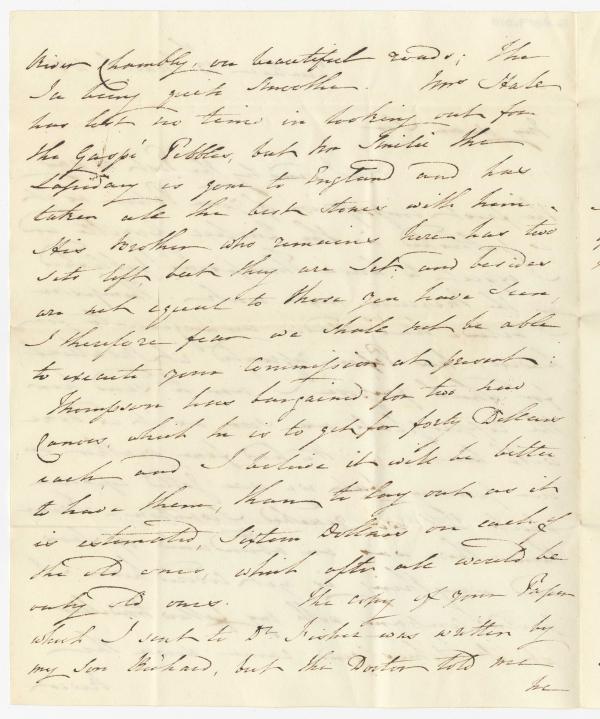 River Chambly, on beautiful roads; The
Ice being quite Smooth. Mrs Hale
has lost no time in looking out for
the Gaspé Pebbles, but Mr Smilie the
Lapidary is gone to England and has
taken all the best stones with him.
His brother who remains here has two
sets left but they are Set and besides
are not equal to those you have Seen,
I therefore fear we shall not be able
to execute your Commission at present:
Thompson has bargained for two new
Canoes, which he is to get for forty Dollars
each and I believe it will be better
to have them, than to lay out as it
is estimated, Sixteen Dollars on each of
the old ones, which after all would be
only old ones. The copy of your Paper
which I sent to Dr Fisher was written by
my Son Richard, but the Doctor told me
he